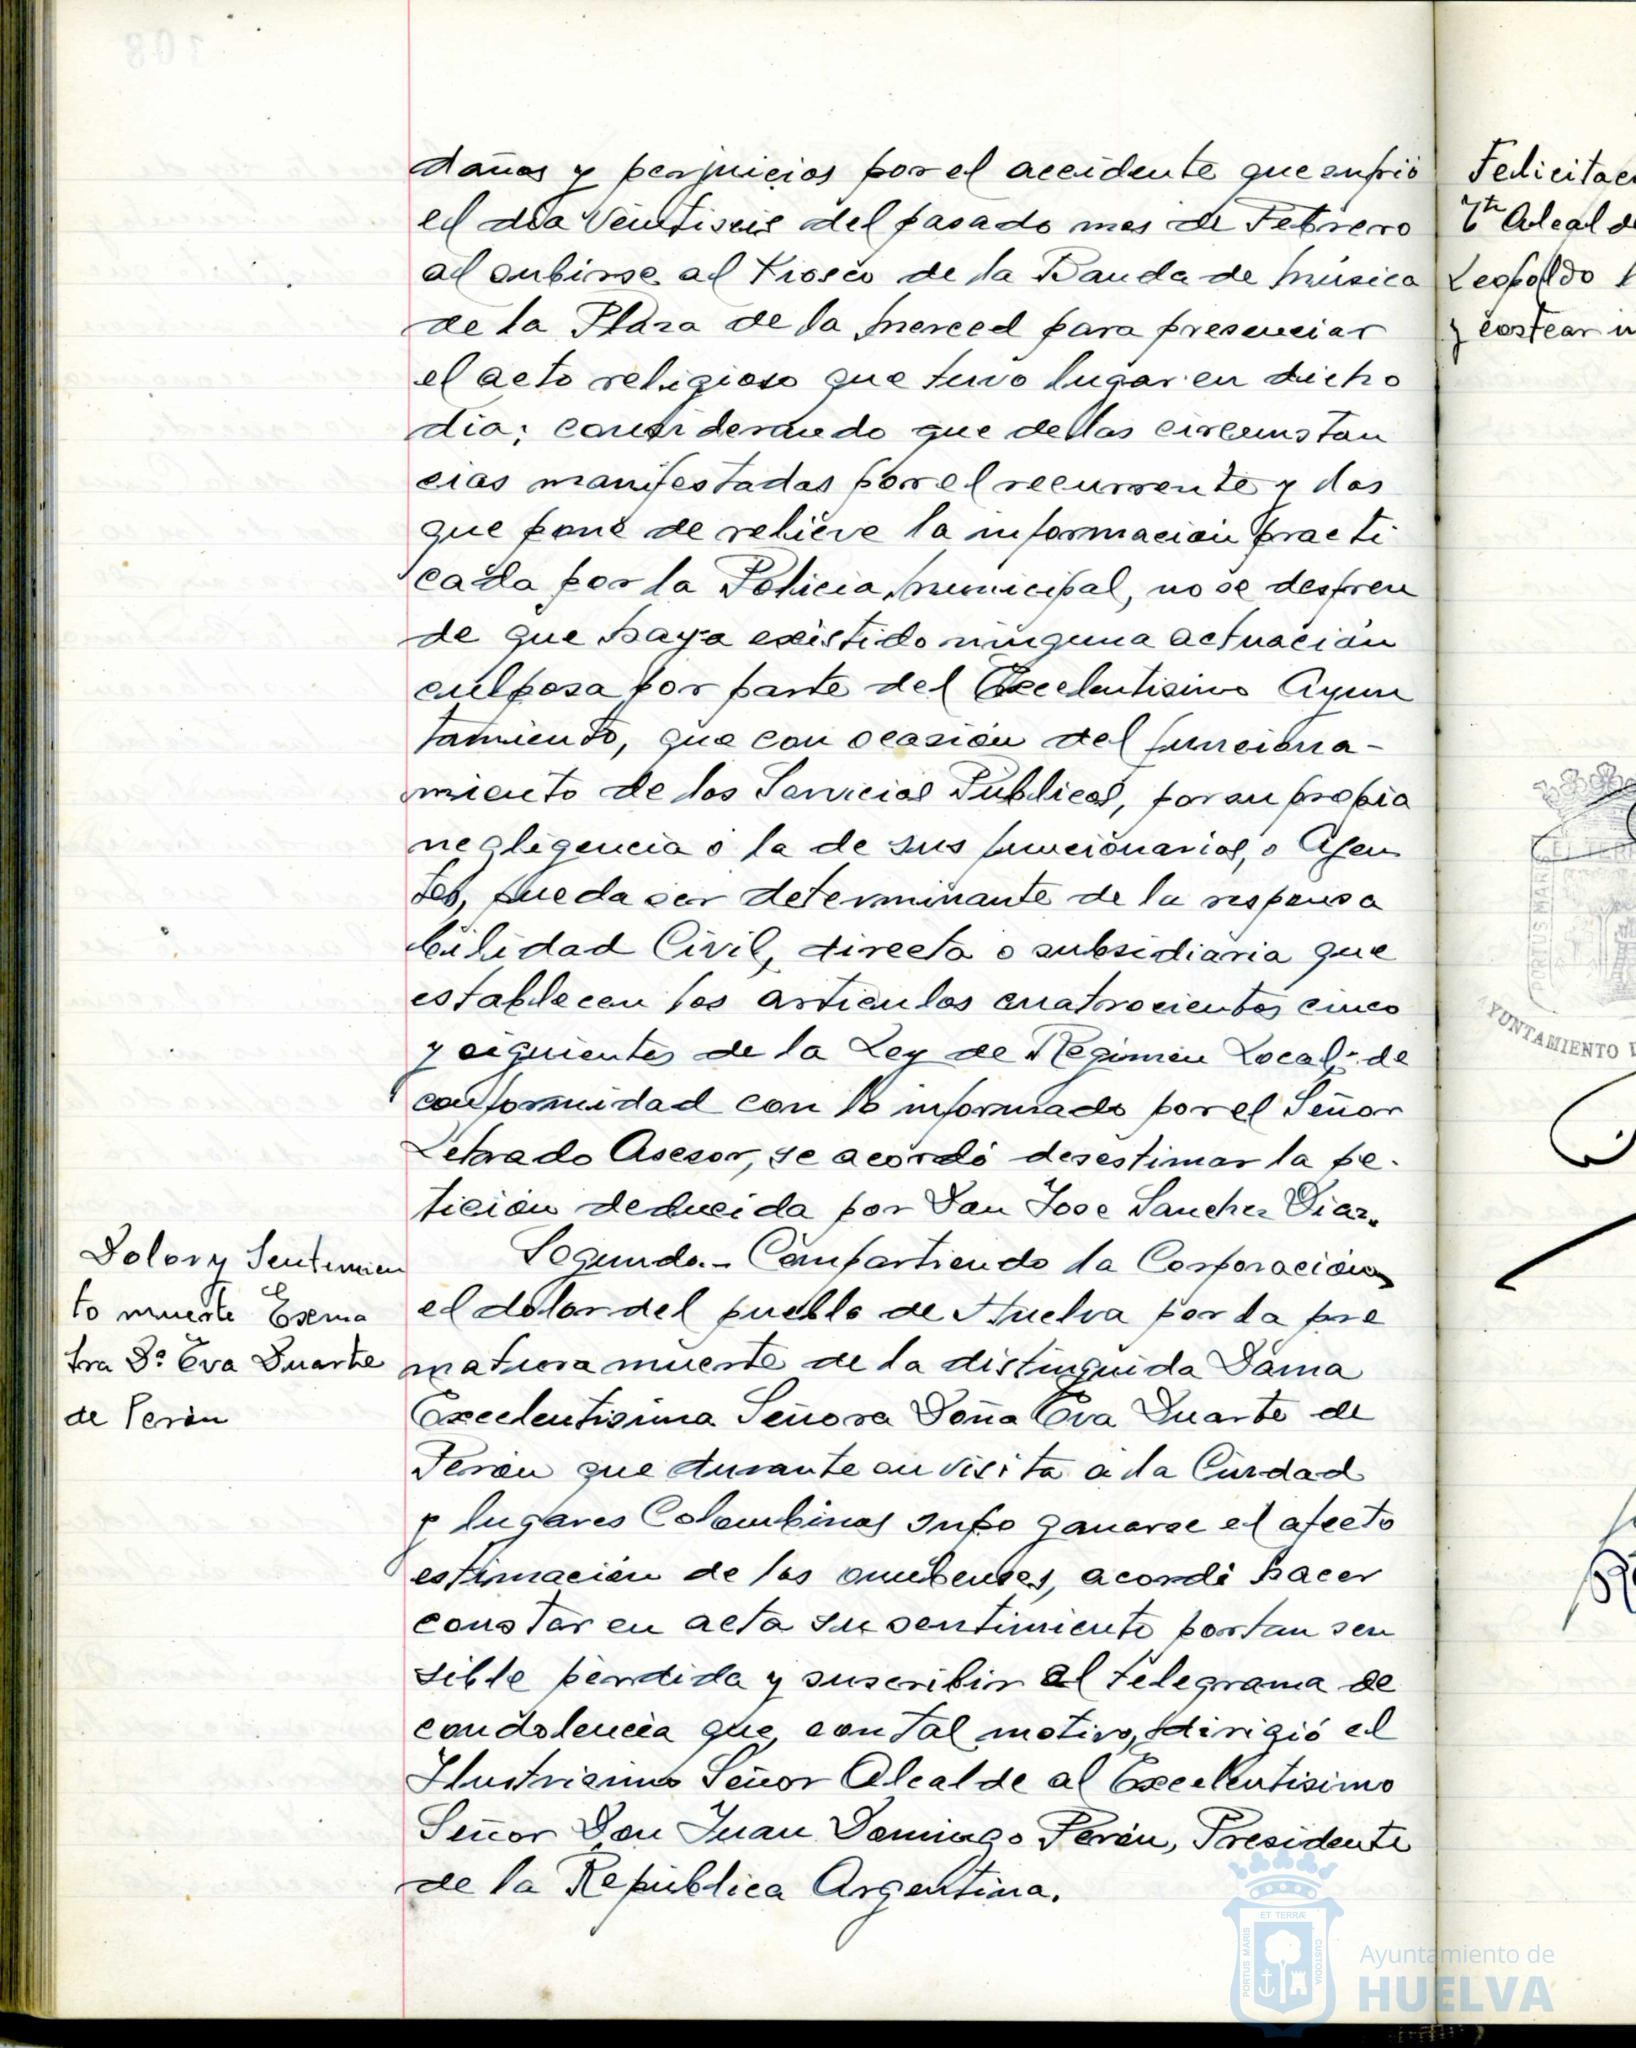 daños y perjuicios por el accidente que sufrió
el dia veintiseis del pasado mes de Febrero
al subirse al Kiosco de la Banda de Música
de la Plaza de la Merced para presenciar
el acto religioso que tuvo lugar en dicho
dia; considerando que de las circunstan
cias manifestadas por el recurrente y las
que pone de relieve la información practi
cada por la Policia Municipal, no se despren
de que haya existido ninguna actuación
culposa por parte del Excelentisimo Ayun
tamiento, que con ocasión del funciona-
miento de los Servicios Públicos, por su propia
negligencia ó la de sus funcionarios, o Agen
tes, pueda ser determinante de la responsa
bilidad Civil, directa o subsidiaria que
establecen los articulos cuatrocientos cinco
y siguientes de la Ley de Régimen Local; de
conformidad con lo informado por el Señor
Letrado Asesor, se acordó desestimar la pe-
tición deducida por Don Jose Sanchez Diaz.
Dolor y Sentimien
to muerte Excma
Sra Dª Eva Duarte
de Perón
Segundo.- Compartiendo la Corporación
el dolor del pueblo de Huelva por la pre
matura muerte de la distinguida Dama
Excelentisima Señora Doña Eva Duarte de
Perón que durante su visita a la Ciudad
y lugares Colombinos supo ganarse el afecto
estimación de los onubenses, acordó hacer
constar en acta su sentimiento por tan sen
sible pérdida y suscribir el telegrama de
condolencia que, con tal motivo, dirigió el
Ilustrisimo Señor Alcalde al Excelentisimo
Señor Don Juan Domingo Perón, Presidente
de la República Argentina.
Felicitac
Tte Alcalde
Leopoldo
y costear
PORTUS MARIS
ET TERRÆ
AYUNTAMIENTO
PORTUS MARIS
ET TERRÆ
CUSTODIA
Ayuntamiento de
HUELVA